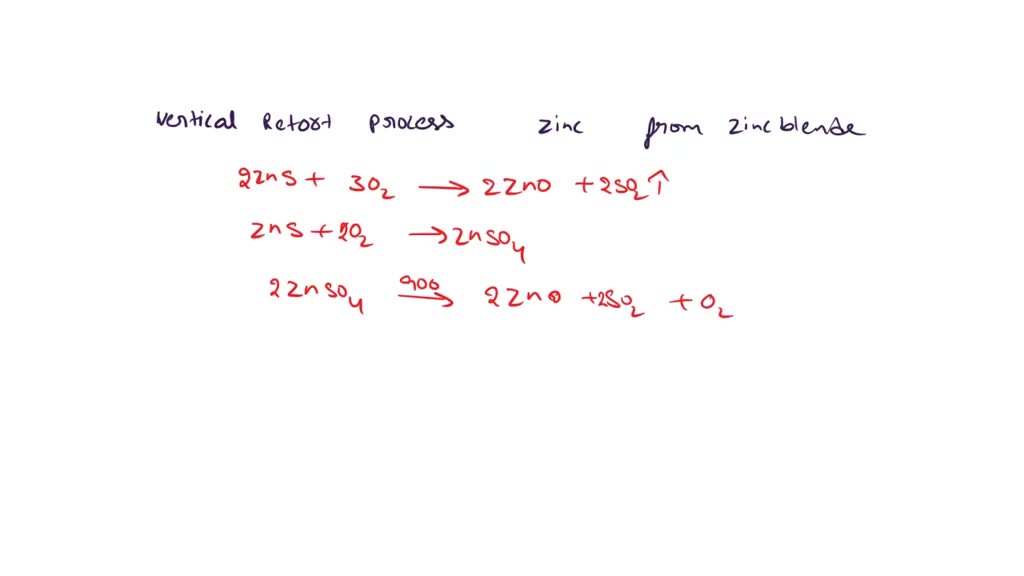 vertical Retort process zinc from zinc blende
2ZnS + 3O₂ → 2ZnO + 2SO₂ ↑
ZnS + 2O₂ → ZnSO₄
2ZnSO₄ 900 → 2ZnO + 2SO₂ + O₂